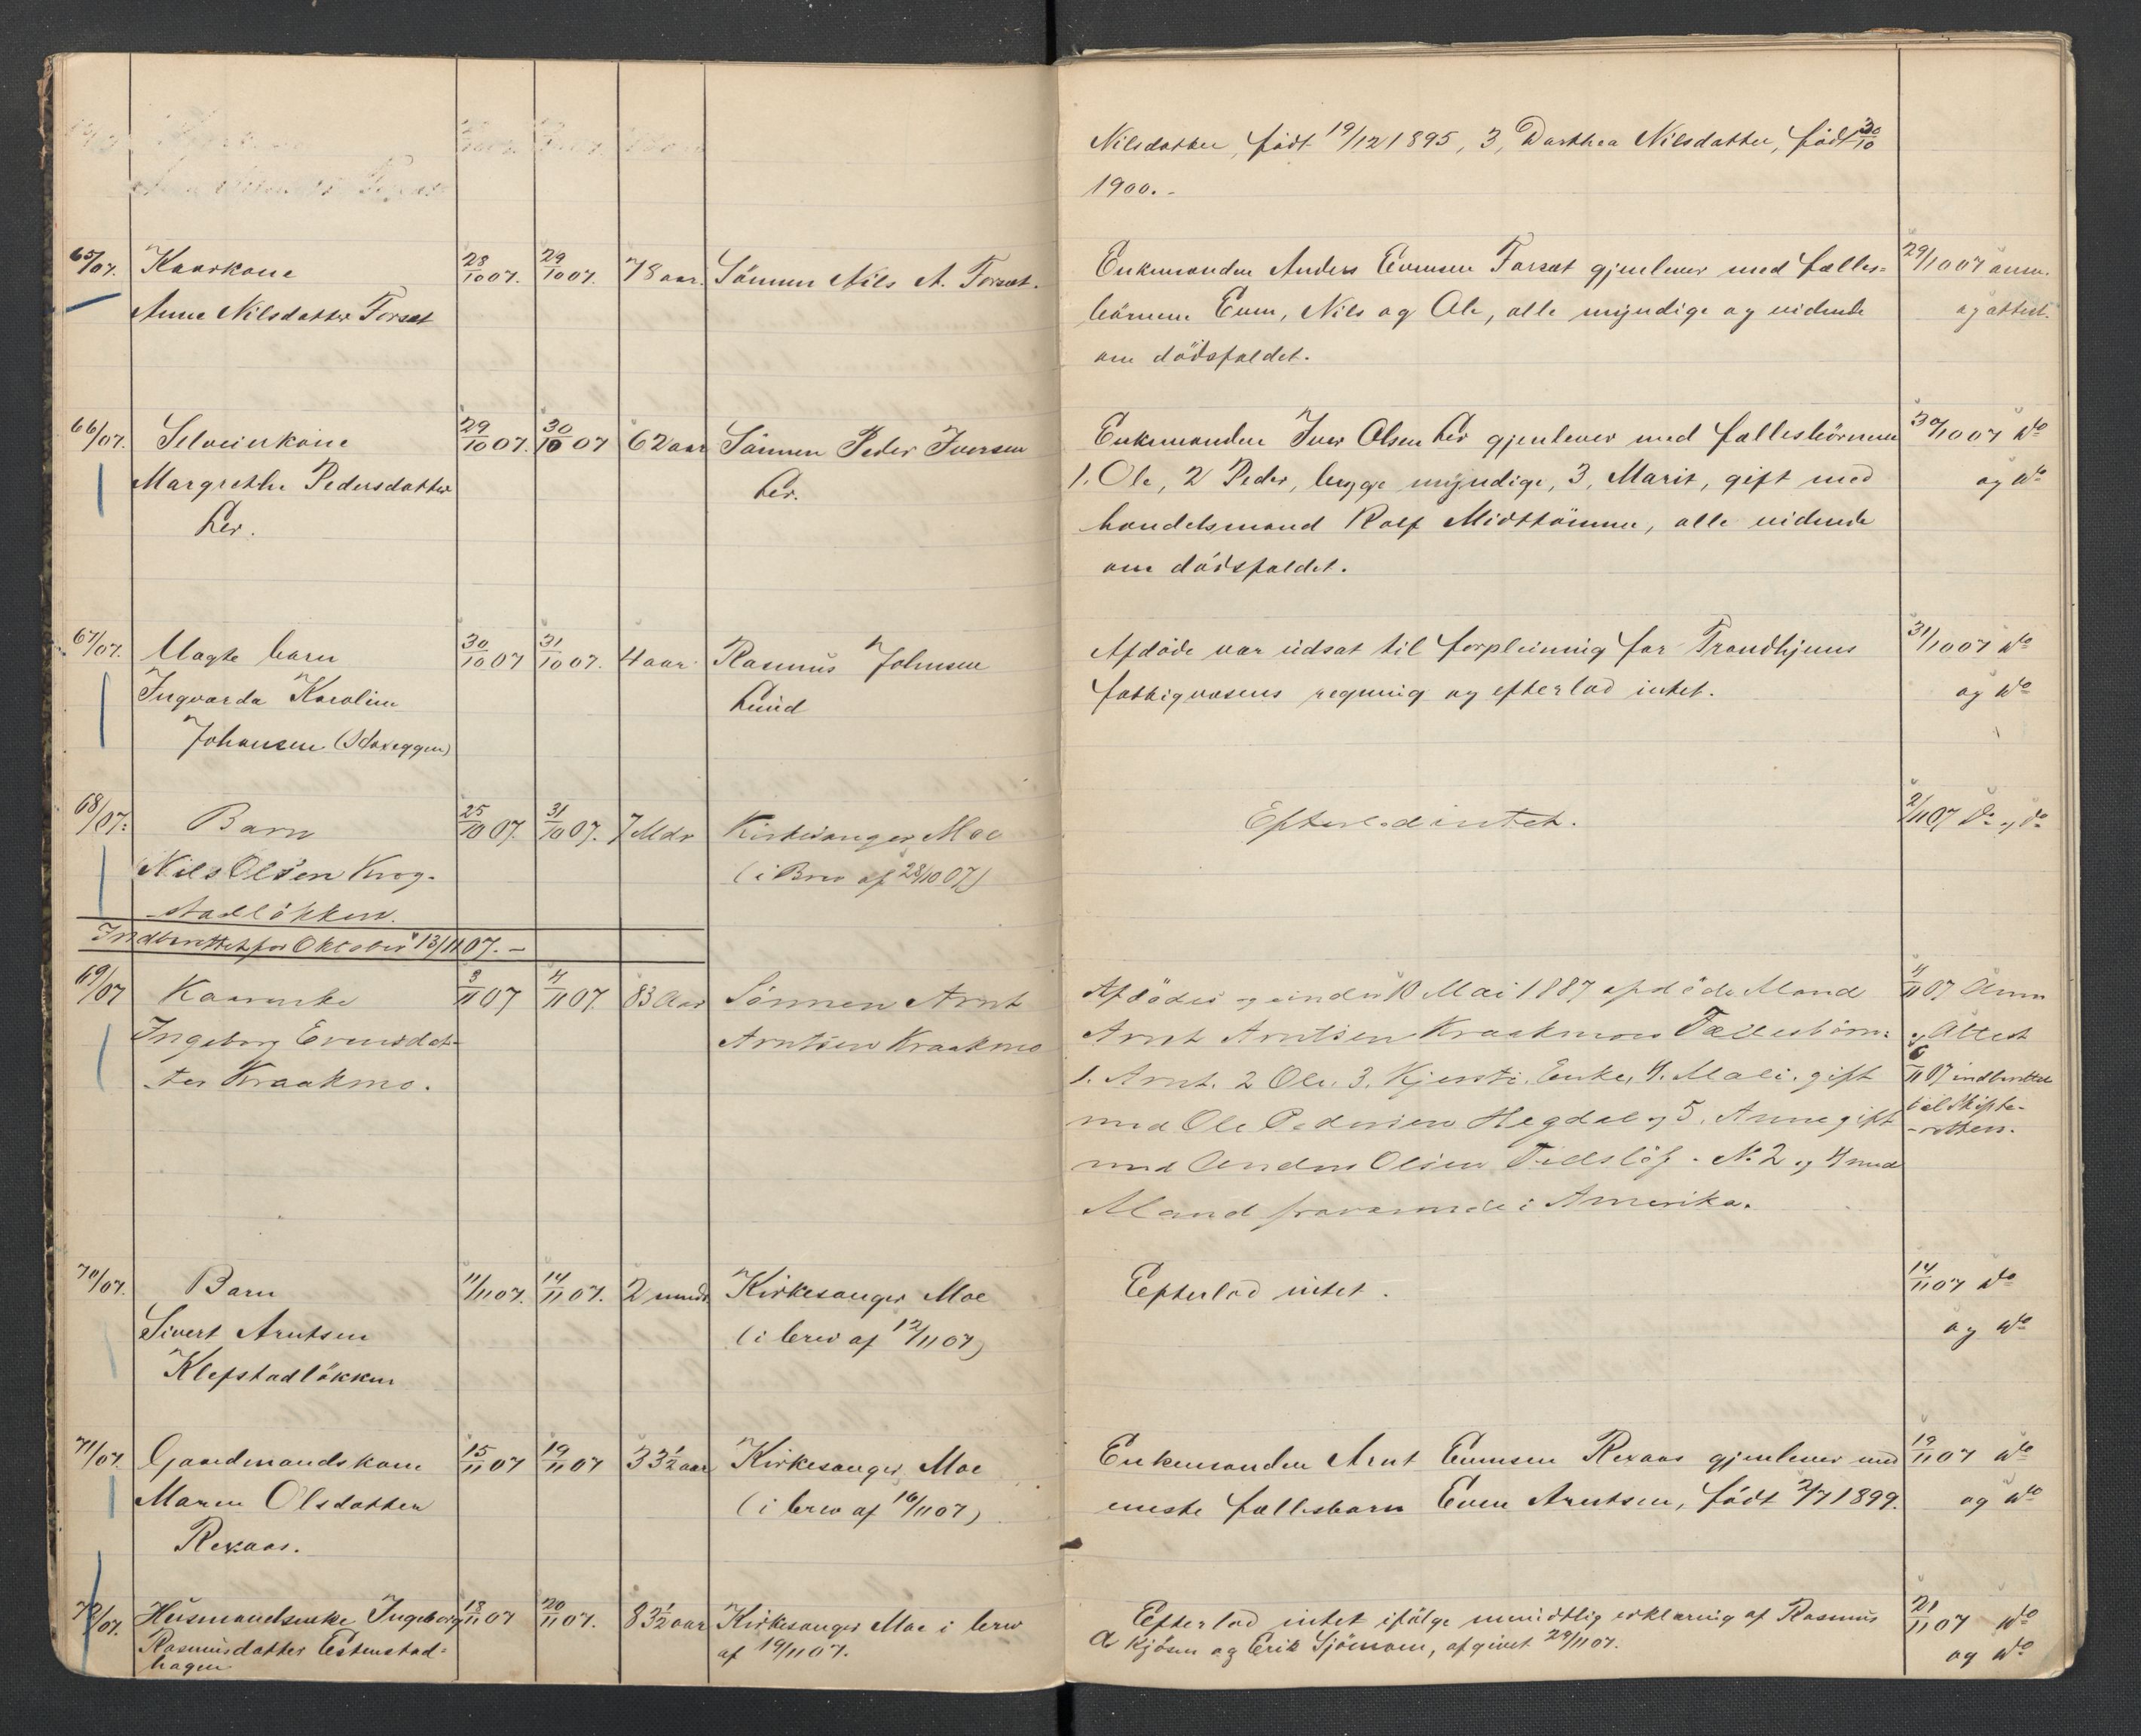 Nilsdatter, født 19/12 1895, 3, Darthea Nilsdatter, født 30/10
1900.-
65/07. Kaarkone 28/10 07. 29/10 07. 78 aar. Sönnen Nils A. Forset.
Anne Nilsdatter Forset
Enkemanden Anders Evensen Forset gjenlever med fælles=
börnene Even, Nils og Ole, alle myndige og vidende
om dödsfaldet.
29/10 07 anm.
og attest.
66/07. Selveierkone 29/10 07. 30/10 07 62 aar Sönnen Peder Iversen
Margrethe Pedersdatter Ler.
Ler.
Enkemanden Iver Olsen Ler gjenlever med fællesbörnene
1. Ole, 2 Peder, begge myndige, 3, Marit, gift med
handelsmand Rolf Midttömme, alle vidende
om dödsfaldet.
30/10 07 do
og do
67/07. Ugte barn 30/10 07 31/10 07. 4 aar. Rasmus Johnsen
Ingvarda Karoline Lund
Johansen
Afdöde var udsat til forpleining for Trondhjems
fattigvæsens regning og efterlod intet.
31/10 07 do
og do
68/07. Barn 25/10 07. 31/10 07. 7 Mdr Kirkesanger Moe
Nils Olsen Krog- (i Brev af 28/10 07)
stadlökken.
Efterlod intet.
2/11 07 do og do
Indberettet for Oktober 13/11 07. -
69/07 Kaarenke 3/11 07 4/11 07. 83 Aar Sönnen Arnt
Ingeborg Evensdat- Arntsen Kraakmo
ter Kraakmo.
Afdödes og under 10 Mai 1887 afdöde Mand
Arnt Arntsen Kraakmoes Fællesbörn:
1. Arnt. 2 Ole. 3. Kjersti, Enke, 4. Mali, gift
med Ole Pedersen Hegdal og 5. Anne gift
med Anders Olsen. No 2 og 4 med
Mand fraværende i Amerika.
4/11 07 Anm
og Attest
6/11 07 indberettet
til Skifte-
retten.
70/07. Barn 11/11 07. 14/11 07. 2 mndr Kirkesanger Moe
Sivert Arntsen (i brev af 12/11 07)
Klefstadlökken
Efterlod intet.
14/11 07 do
og do
71/07. Gaardmandskone 15/11 07 19/11 07 33½ aar Kirkesanger Moe
Maren Olsdatter (i brev af 16/11 07)
Rexaas.
Enkemanden Arnt Evensen Rexaas gjenlever med
eneste fællesbarn Even Arntsen, födt 2/7 1899.
19/11 07 do
og do
72/07. Husmandsenke Ingeborg 18/11 07 20/11 07. 83½ aar Kirkesanger Moe i brev
Rasmusdatter Estenstad= af 19/11 07.
hagen
Efterlod intet ifölge mundtlig erklæring af Rasmus
Kjösen og Erik Sjömoen, afgivet 29/11 07.
21/11 07 do
og do